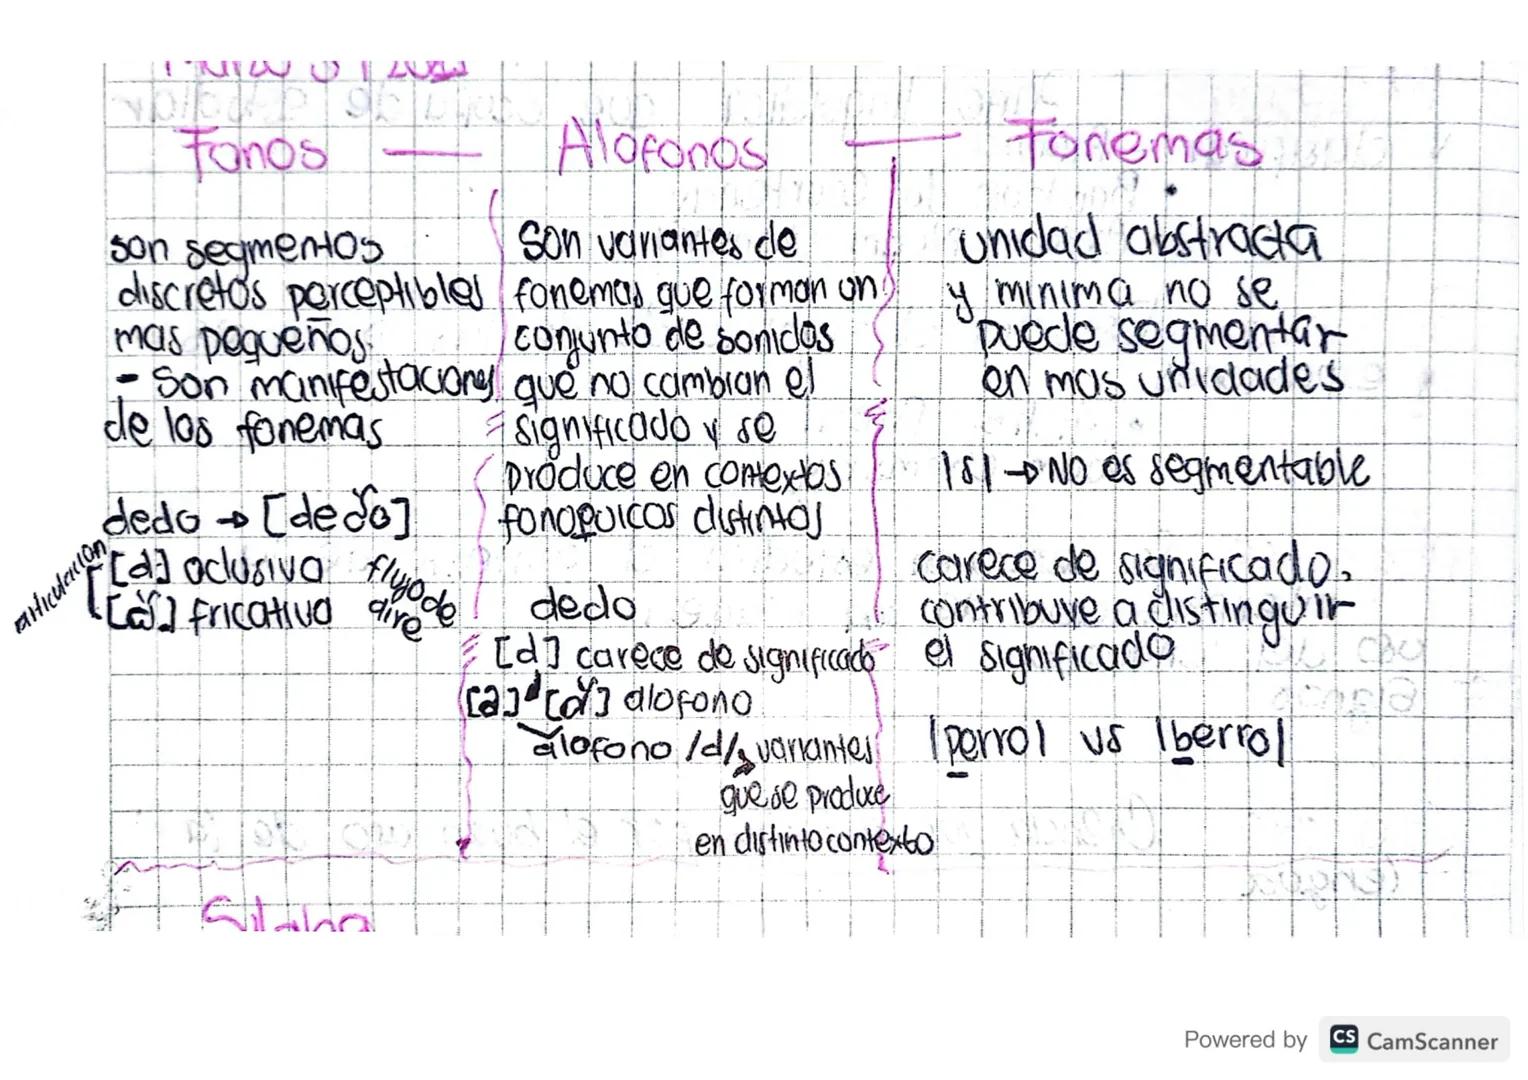 Fonos — Alofonos — Fonemas
son segmentos
discretos perceptibles
mas pequeños.
- Son manifestaciones
de los fonemas
dedo → [deďo]
articulacion
[d] oclusiva
[ď] fricativa
flujo de
aire
Son variantes de
fonemas que forman un
conjunto de sonidos
que no cambian el
significado y se
produce en contextos
fonoquicos distintos
dedo
[d] carece de significado
[d] [ď] alofono
alofono /d/ variantes
que se produce
en distinto contexto
unidad abstracta
y minima no se
puede segmentar
en mas unidades
|s| → No es segmentable
carece de significado.
contribuye a distinguir
el significado
|perro| vs |berro|
Silaba
Powered by CS CamScanner